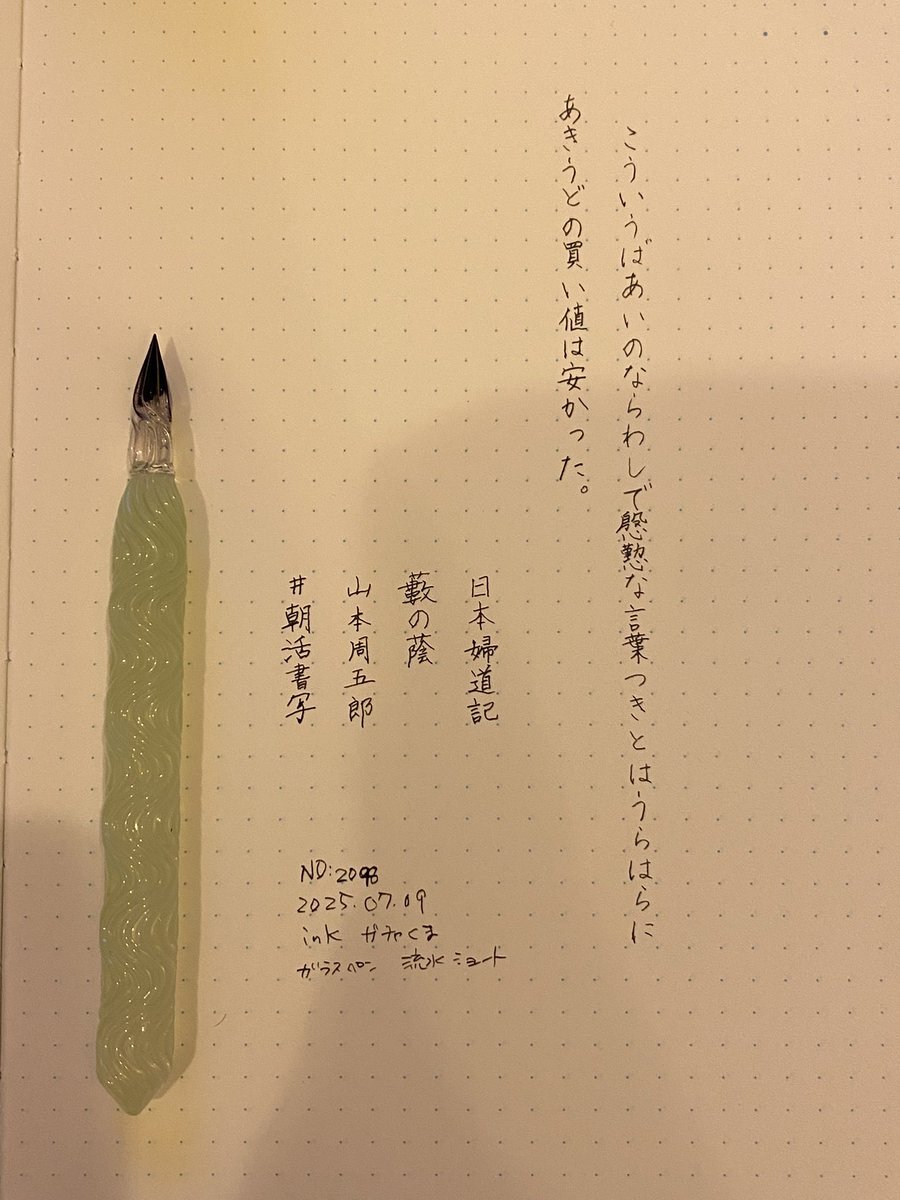 こういうばあいのならわしで慇懃な言葉つきとはうらはらに
あきうどの買い値は安かった。
日本婦道記
藪の蔭
山本周五郎
#朝活書写
NO:2098
2025.07.09
ink かみくま
ガラスペン 流水ショート